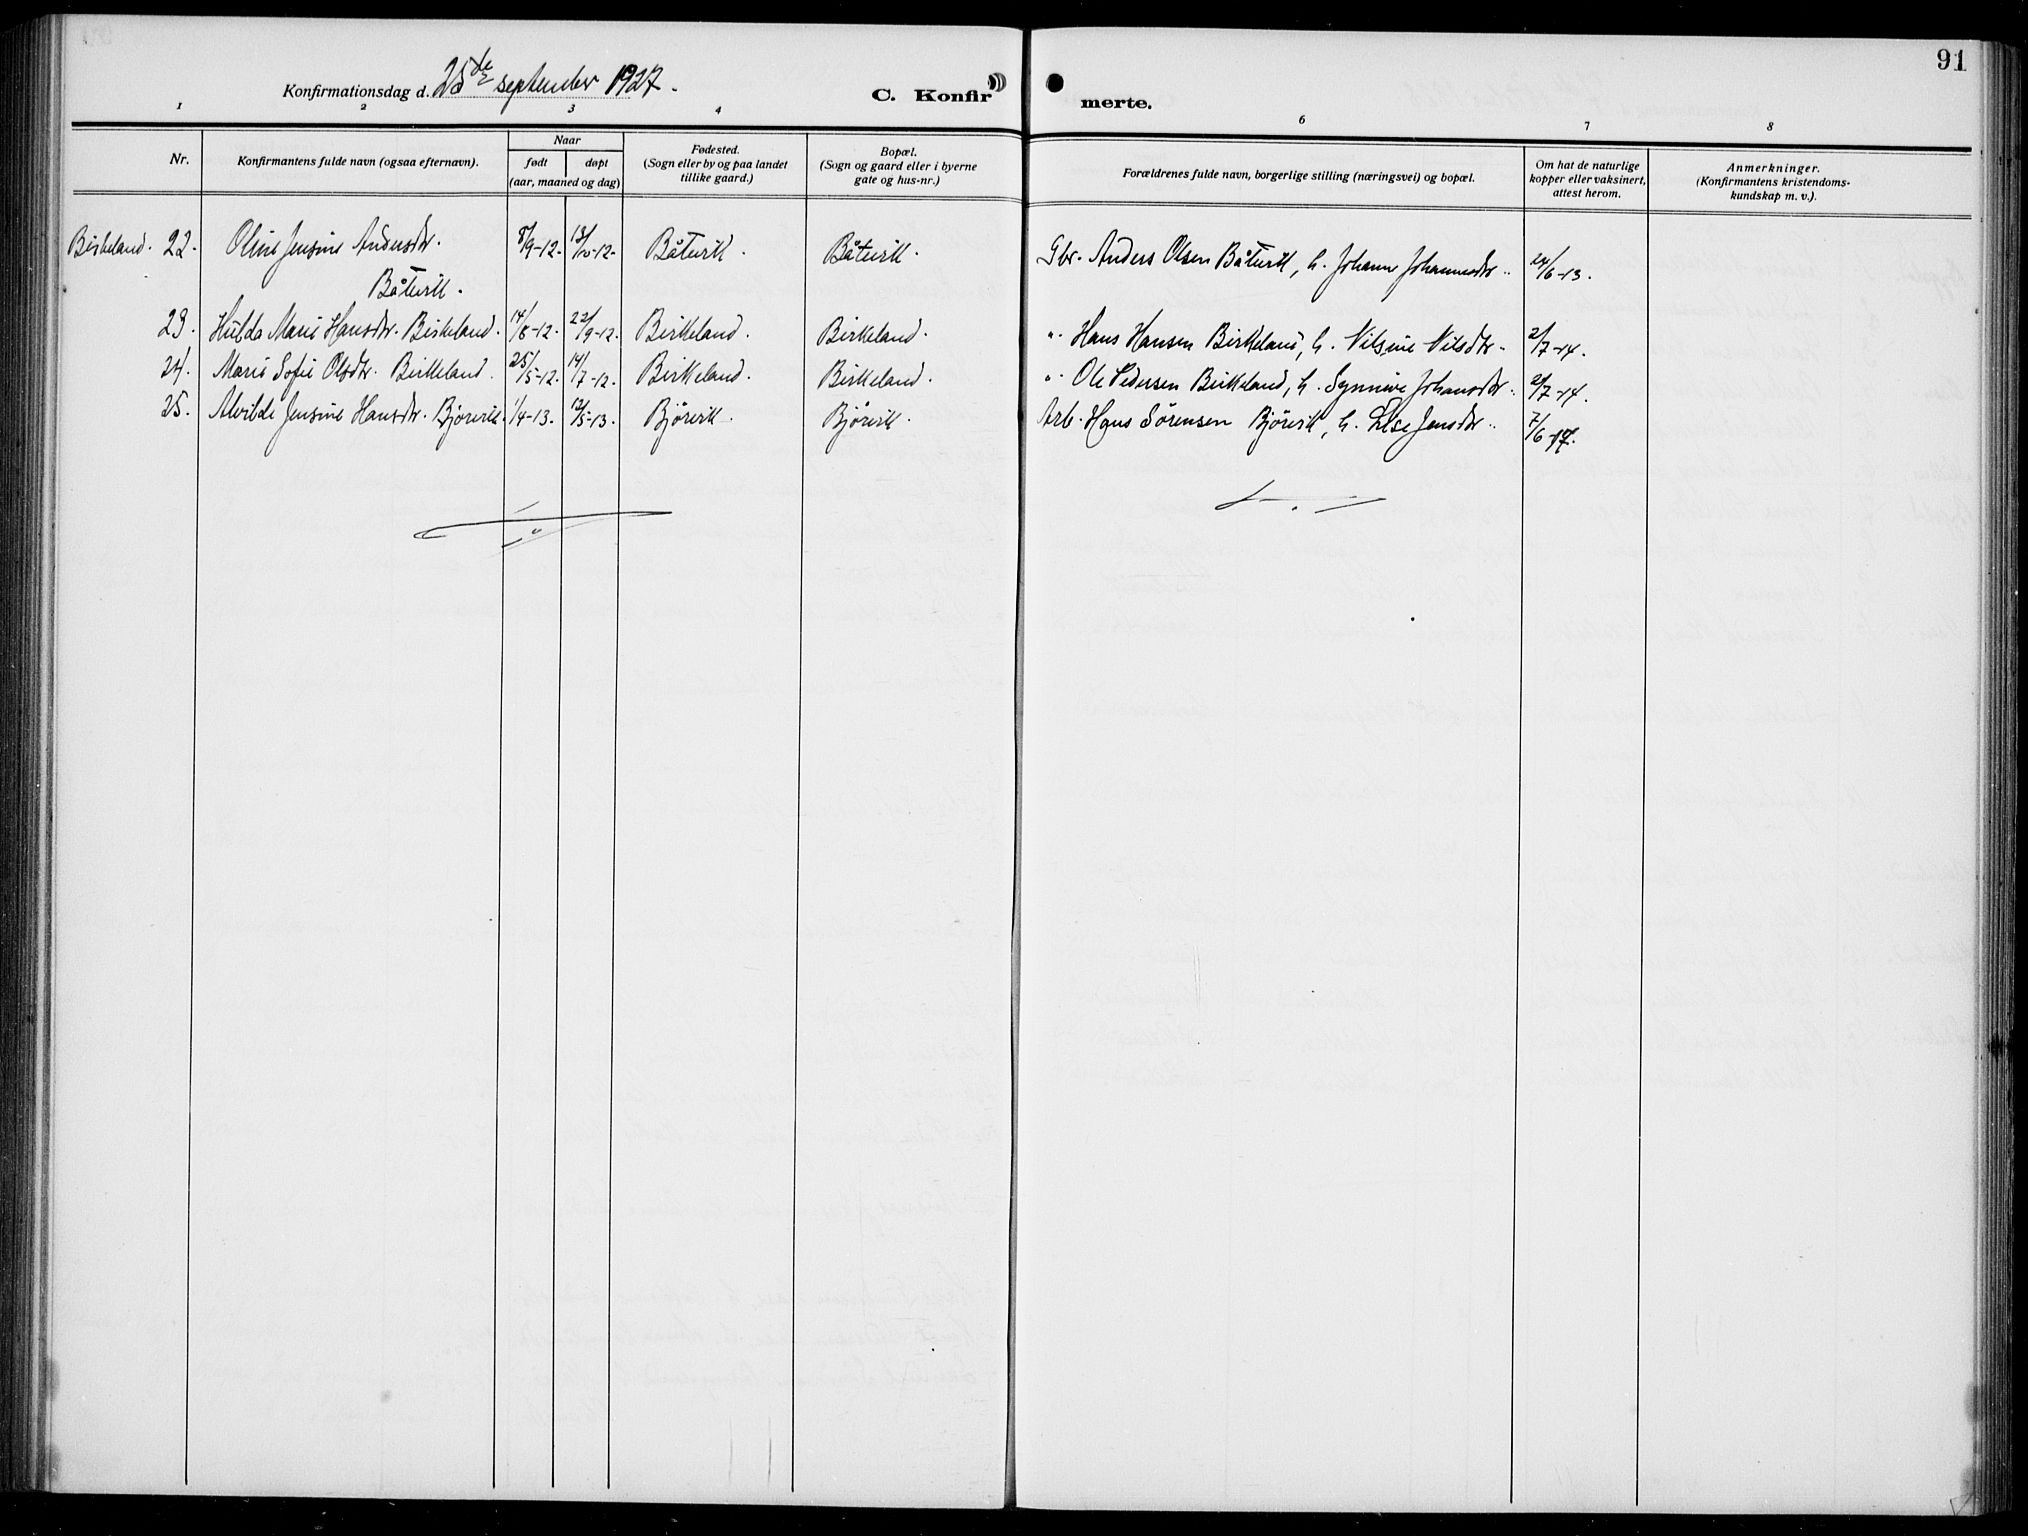 91
Konfirmationsdag d. 25de september 1927.
C. Konfir
merte.
1 2 3 4 6 7 8
Nr.
Konfirmantens fulde navn (ogsaa efternavn).
Naar
født
døpt
(aar, maaned og dag)
Fødested.
(Sogn eller by og paa landet
tillike gaard.)
Bopæl.
(Sogn og gaard eller i byerne
gate og hus-nr.)
Forældrenes fulde navn, borgerlige stilling (næringsvei) og bopæl.
Om hat de naturlige
kopper eller vaksinert,
attest herom.
Anmerkninger.
(Konfirmantens kristendoms-
kundskap m. v.).
Birkeland. 22. Oline Jensine Andersdtr. 8/9-12. 13/10-12. Båtvik. Båtvik. Gbr. Anders Olsen Båtvik, h. Johanne Johannesdtr. 24/6-13.
Båtvik.
23. Hulda Marie Hansdtr. Birkeland. 14/8-12. 22/9-12. Birkeland. Birkeland. " Hans Hansen Birkeland, h. Nilsine Nilsdtr. 2/7-14.
24. Marie Sofie Olsdtr. Birkeland. 25/5-12. 14/7-12. Birkeland. Birkeland. " Ole Pedersen Birkeland, h. Synnive Johansdtr. 2/7-14.
25. Alvilde Jensine Hansdtr. Bjørvik. 1/4-13. 12/5-13. Bjørvik. Bjørvik. Arb. Hans Sørensen Bjørvik, h. Else Jensdtr. 7/6-17.